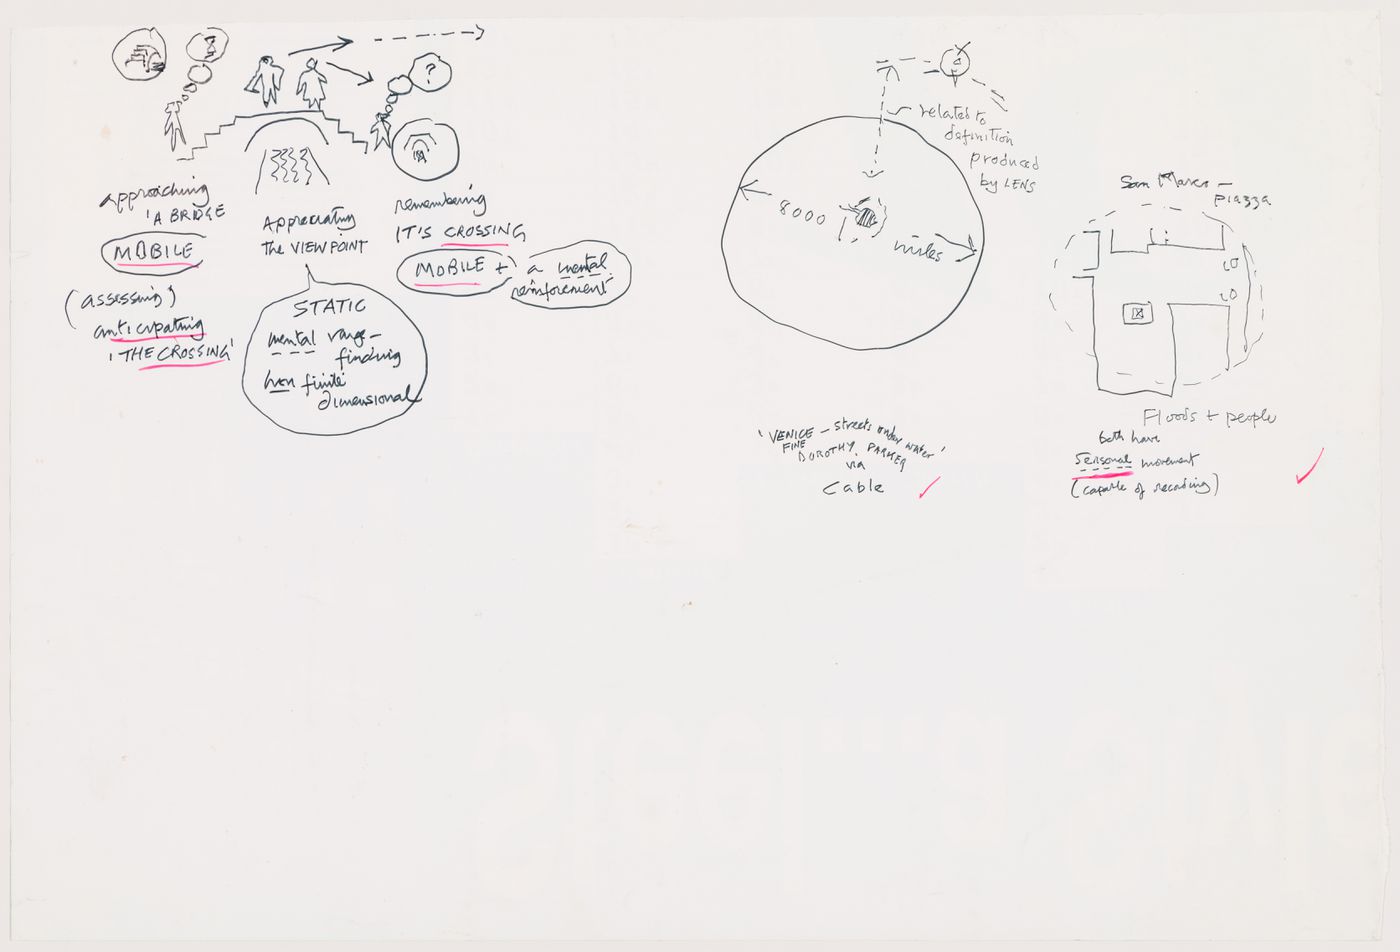 ?
approaching
'A BRIDGE
MOBILE
(assessing)
anticipating
'THE CROSSING'
Appreciating
the VIEWPOINT
STATIC
mental range-
finding
non finite
dimensional
remembering
IT'S CROSSING
MOBILE +
a mental
reinforcement
related to
definition
produced
by LENS
8000
miles
'VENICE – streets under water'
FINE
DOROTHY PARKER
via
Cable
San Marco –
piazza
Floods + people
both have
seasonal movement
(capable of recording)